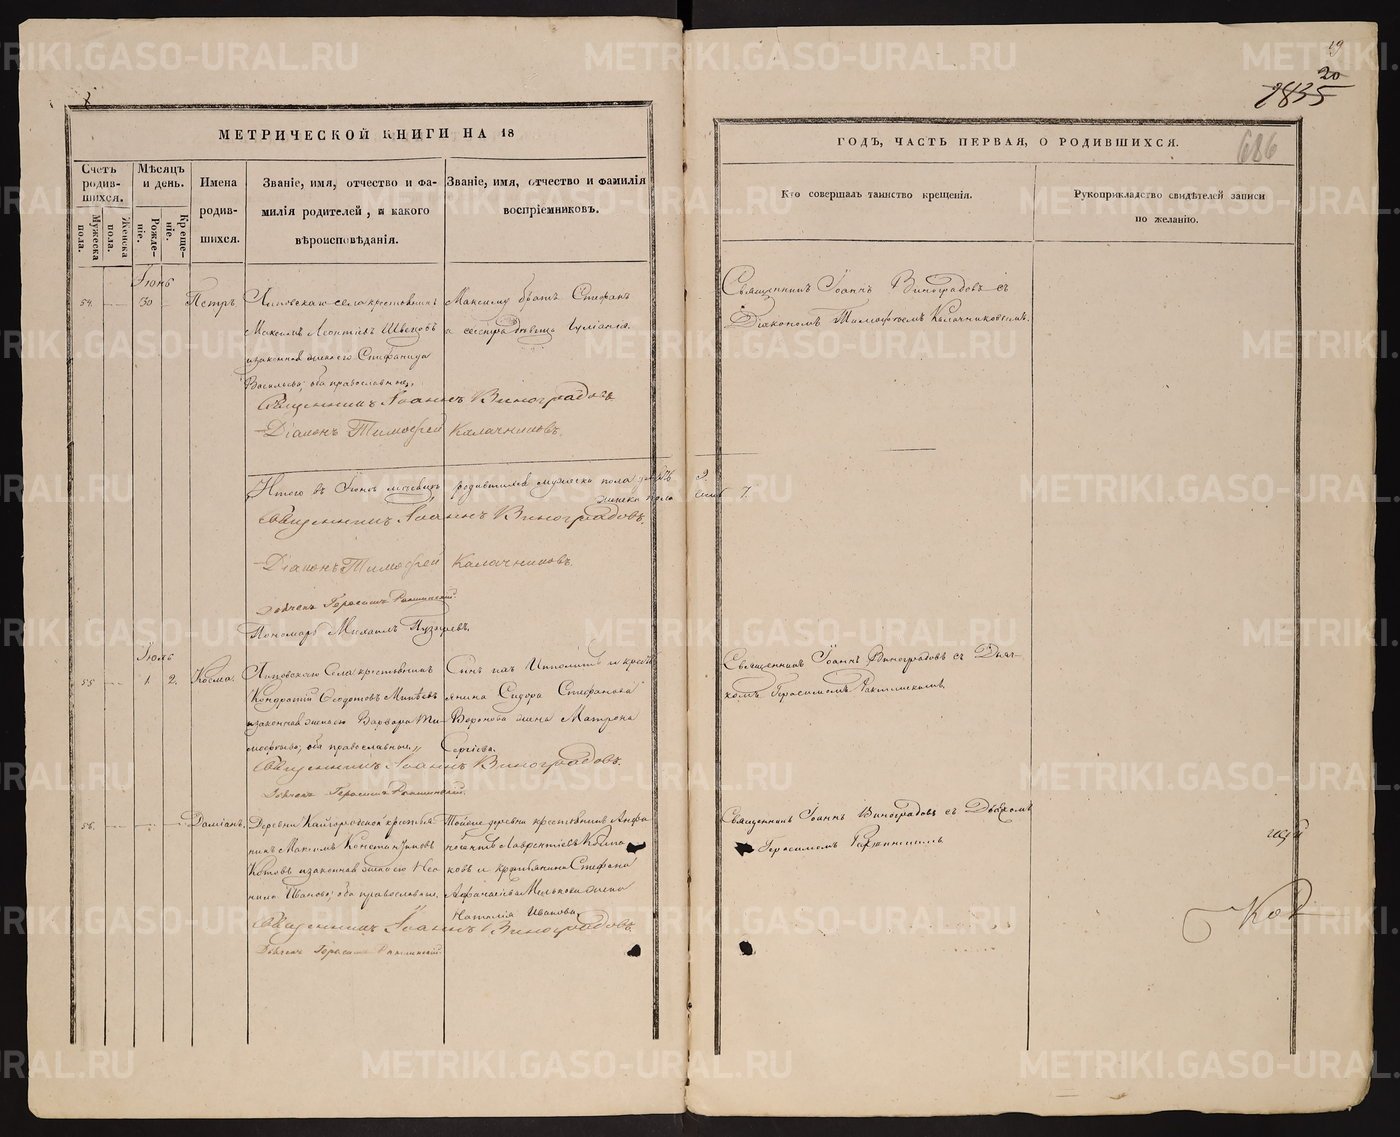 19
20
1835
686
МЕТРИЧЕСКОЙ КНИГИ НА 18
ГОДЪ, ЧАСТЬ ПЕРВАЯ, О РОДИВШИХСЯ.
Счетъ родив-шихся.
Мужеска пола.
Женска пола.
Мѣсяцъ и день.
Рожде-ніе.
Креще-ніе.
Имена родив-шихся.
Званіе, имя, отчество и фа-
милія родителей, и какого
вѣроисповѣданія.
Званіе, имя, отчество и фамилія
воспріемниковъ.
Кто совершалъ таинство крещенія.
Рукоприкладство свидѣтелей записи
по желанію.
Іюнь
54. 30 Петръ
Липовскаго села крестьянинъ
Максимъ Леонтіевъ Швецовъ
и законная жена его Стефанида
Васильева; оба православные.
Максиму братъ Стефанъ
а сестра девица Іуліанія.
Священникъ Іоаннъ Виноградовъ съ
Діакономъ Тимофеемъ Калачниковымъ.
Священникъ Іоаннъ Виноградовъ
Діаконъ Тимофей Калачниковъ.
Итого въ Іюнѣ месяцѣ родившихся мужеска пола 9.
женска пола 7.
Священникъ Іоаннъ Виноградовъ.
Діаконъ Тимофей Калачниковъ.
Дьячекъ Герасимъ
Пономарь Михаилъ Пузыревъ.
Іюль
55 1. 2. Косма.
Липовскаго Села крестьянинъ
Кондратій Федотовъ
и законная жена его Варвара Ти-
мофеева; оба православные.
Сынъ ихъ Ипполитъ и кресть
янина Сидора Стефанова
Воронова жена Матрона
Сергіева.
Священникъ Іоаннъ Виноградовъ съ Дьяч-
комъ Герасимомъ
Священникъ Іоаннъ Виноградовъ.
Дьячекъ Герасимъ
56. Даміанъ.
Деревни Кайгородской крестья
нинъ Максимъ Константиновъ
Котовъ и законная жена его Нео
нила Иванова; оба православные.
Тойже деревни крестьянинъ
Лаврентіевъ
ковъ и крестьянина Стефана
Мелькова жена
Наталія Иванова.
Священникъ Іоаннъ Виноградовъ съ Дьячкомъ
Герасимомъ
Священникъ Іоаннъ Виноградовъ.
Дьячекъ Герасимъ
METRIKI.GASO-URAL.RU